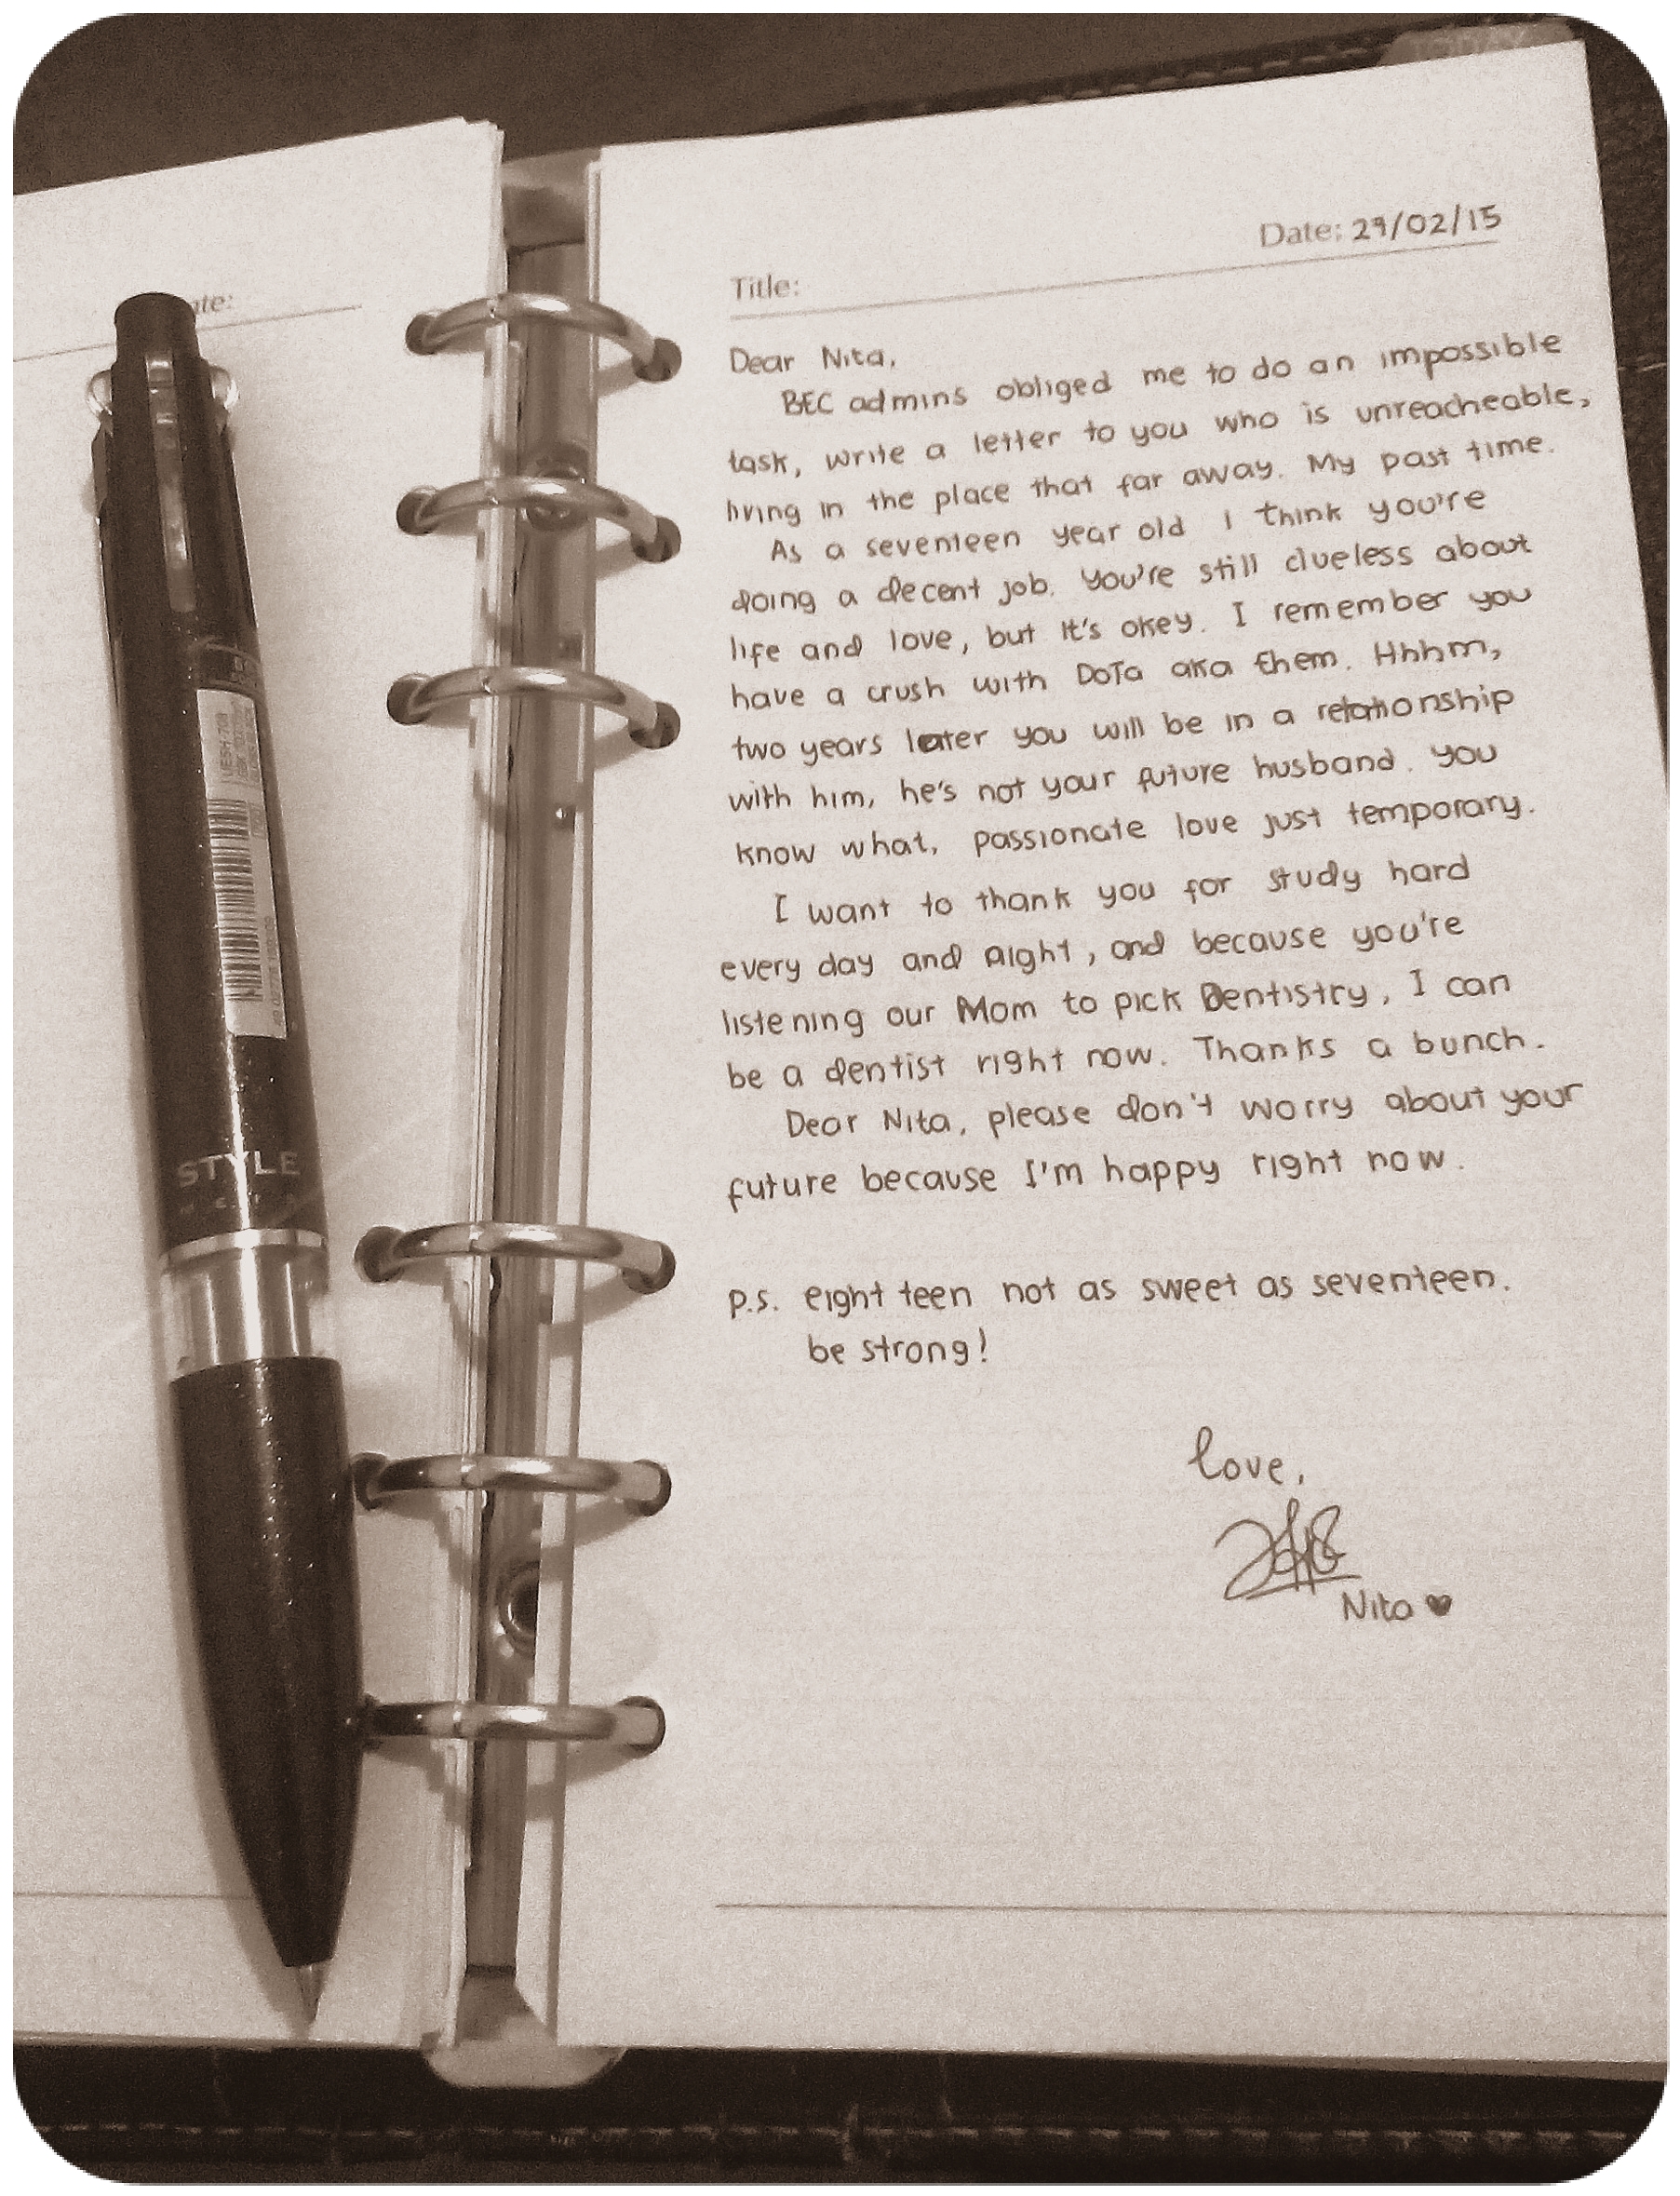 Date: 29/02/15
Title:
Dear Nita,
BEC admins obliged me to do an impossible
task, write a letter to you who is unreacheable,
living in the place that far away. My past time.
As a seventeen year old I think you're
doing a decent job. You're still clueless about
life and love, but it's okey. I remember you
have a crush with DoTa aka them. Hhhm,
two years later you will be in a relationship
with him, he's not your future husband. You
know what, passionate love just temporary.
I want to thank you for study hard
every day and night, and because you're
listening our Mom to pick Dentistry, I can
be a dentist right now. Thanks a bunch.
Dear Nita, please don't worry about your
future because I'm happy right now.
P.s. eight teen not as sweet as seventeen.
be strong!
love,
Nita
STYLE